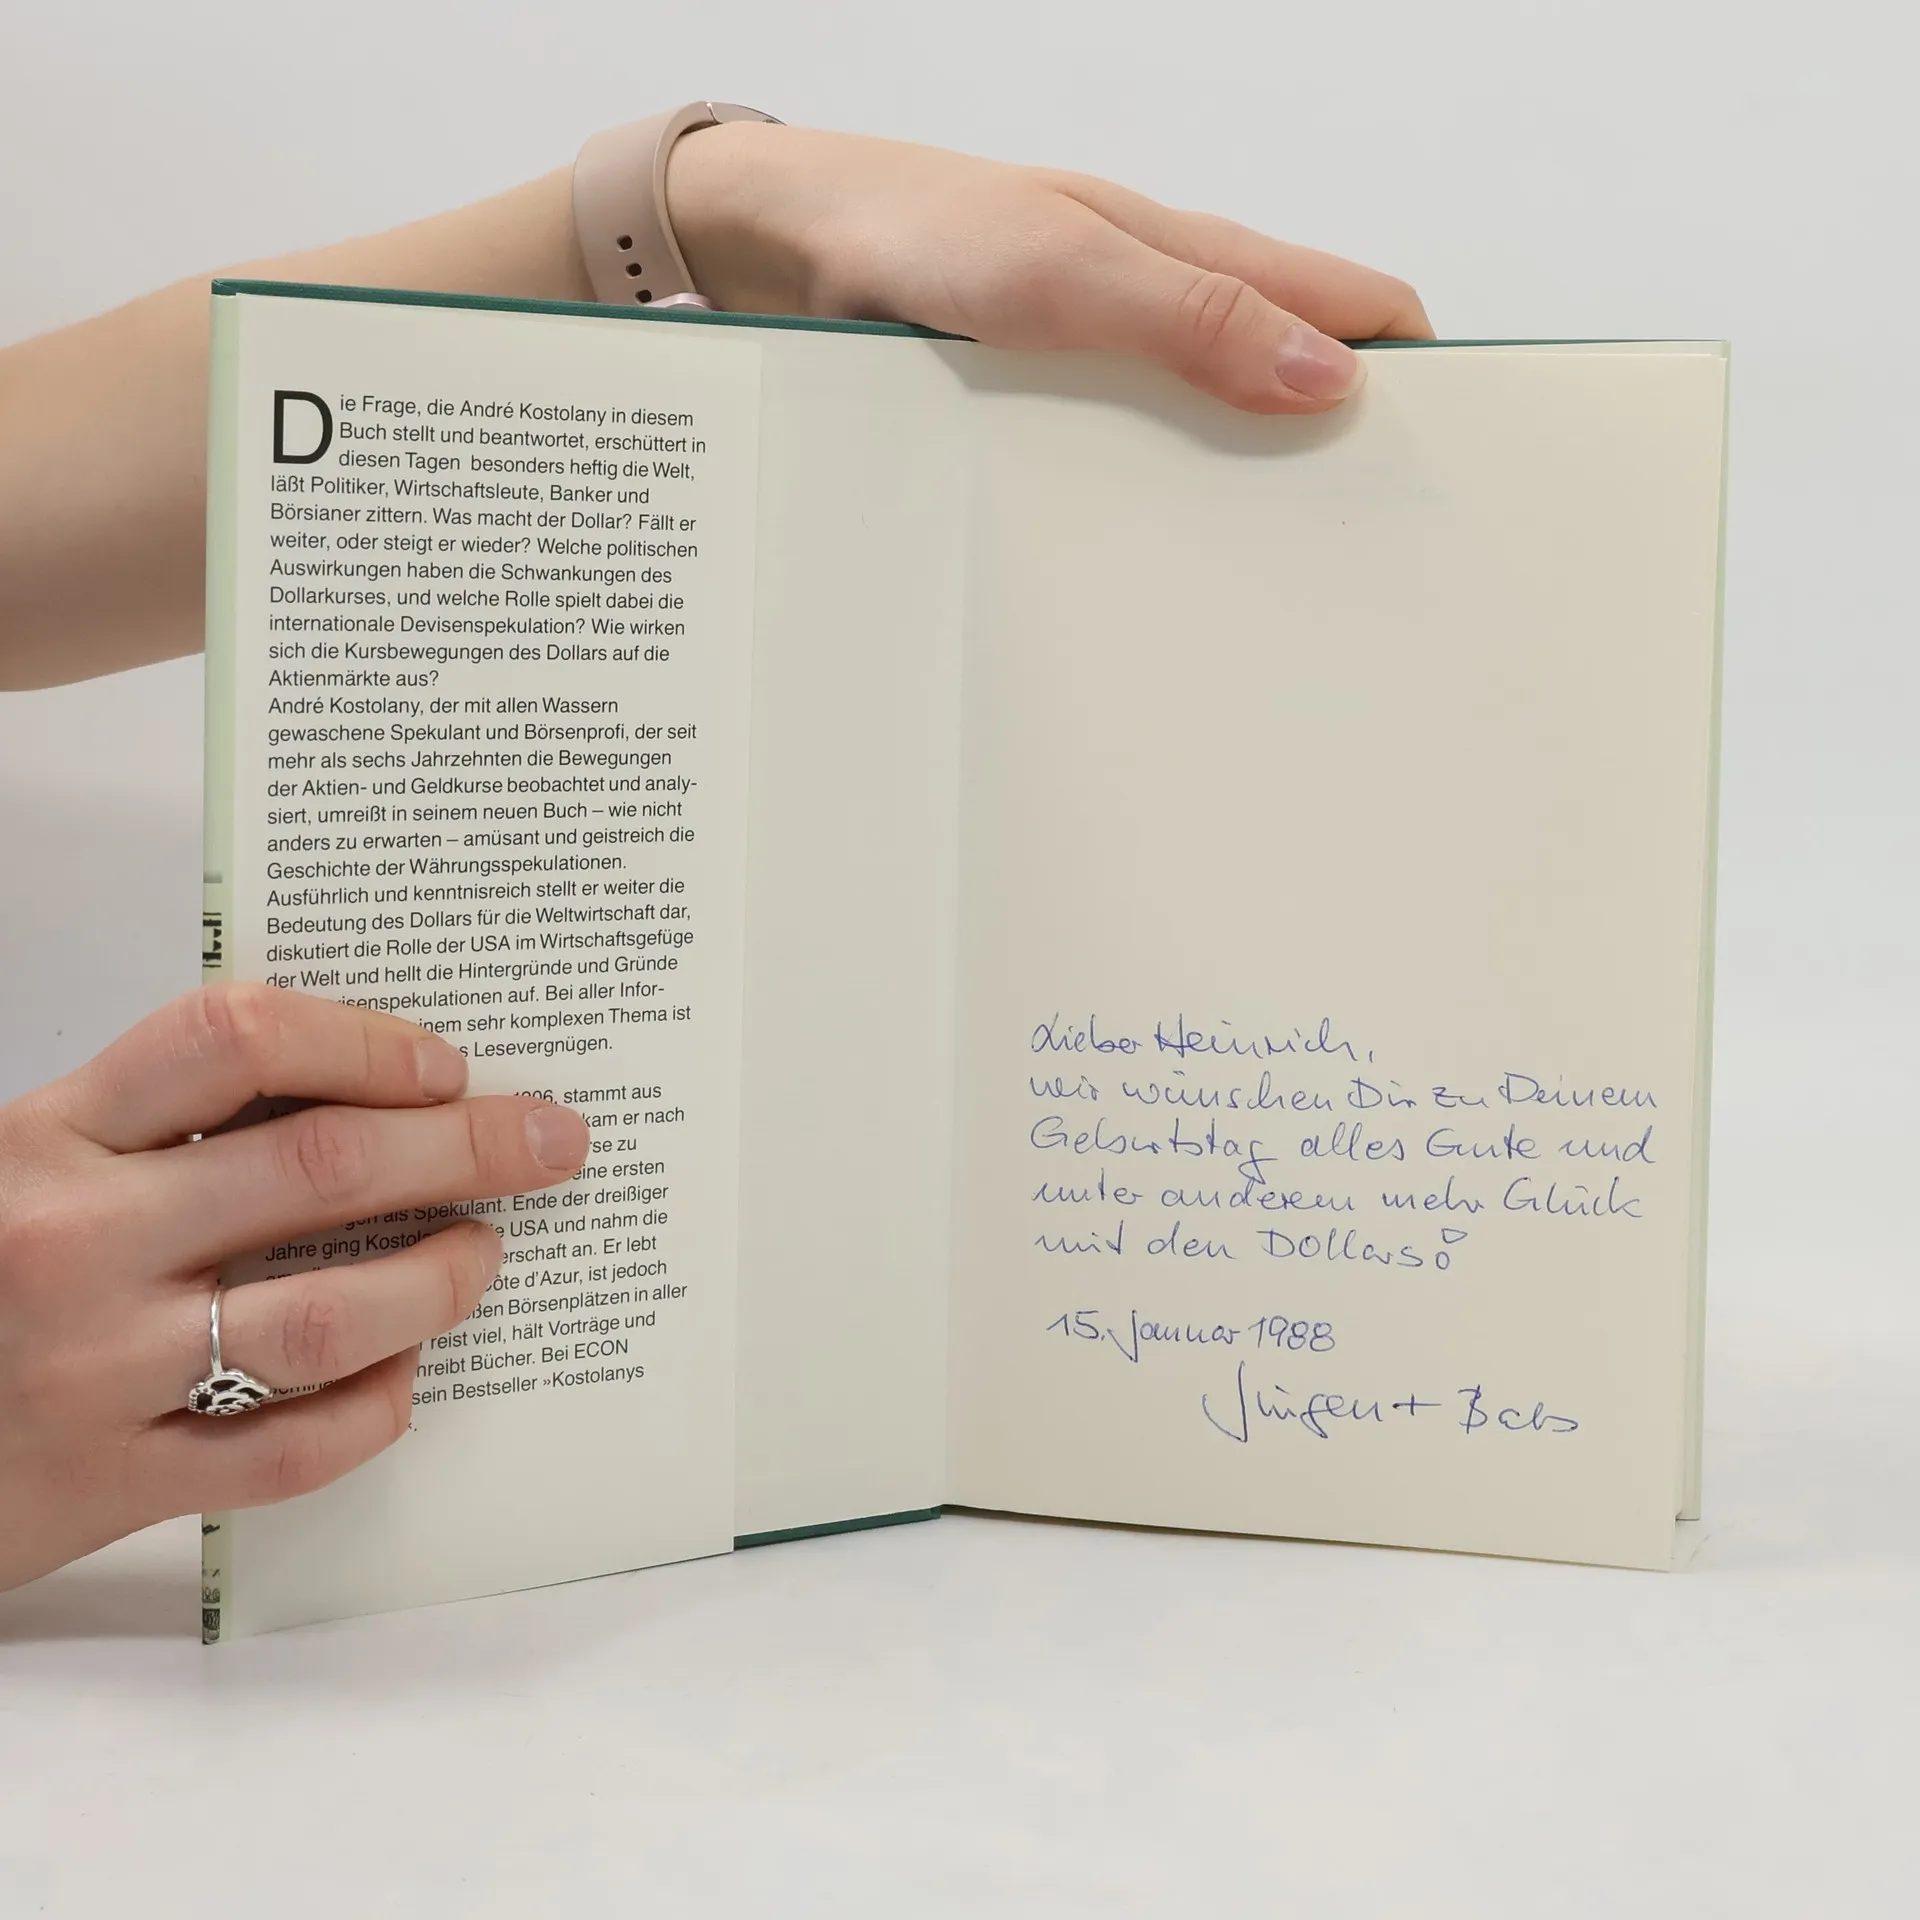 Die Frage, die André Kostolany in diesem
Buch stellt und beantwortet, erschüttert in
diesen Tagen besonders heftig die Welt,
läßt Politiker, Wirtschaftsleute, Banker und
Börsianer zittern. Was macht der Dollar? Fällt er
weiter, oder steigt er wieder? Welche politischen
Auswirkungen haben die Schwankungen des
Dollarkurses, und welche Rolle spielt dabei die
internationale Devisenspekulation? Wie wirken
sich die Kursbewegungen des Dollars auf die
Aktienmärkte aus?
André Kostolany, der mit allen Wassern
gewaschene Spekulant und Börsenprofi, der seit
mehr als sechs Jahrzehnten die Bewegungen
der Aktien- und Geldkurse beobachtet und analy-
siert, umreißt in seinem neuen Buch – wie nicht
anders zu erwarten – amüsant und geistreich die
Geschichte der Währungsspekulationen.
Ausführlich und kenntnisreich stellt er weiter die
Bedeutung des Dollars für die Weltwirtschaft dar,
diskutiert die Rolle der USA im Wirtschaftsgefüge
der Welt und hellt die Hintergründe und Gründe
isenspekulationen auf. Bei aller Infor-
inem sehr komplexen Thema ist
s Lesevergnügen.
stammt aus
kam er nach
rse zu
eine ersten
als Spekulant. Ende der dreißiger
Jahre ging Kosto e USA und nahm die
erschaft an. Er lebt
ôte d'Azur, ist jedoch
ßen Börsenplätzen in aller
reist viel, hält Vorträge und
hreibt Bücher. Bei ECON
sein Bestseller »Kostolanys
Lieber Heinrich,
wir wünschen Dir zu Deinem
Geburtstag alles Gute und
unter anderem mehr Glück
mit den Dollars!
15. Januar 1988
Jürgen + Babs